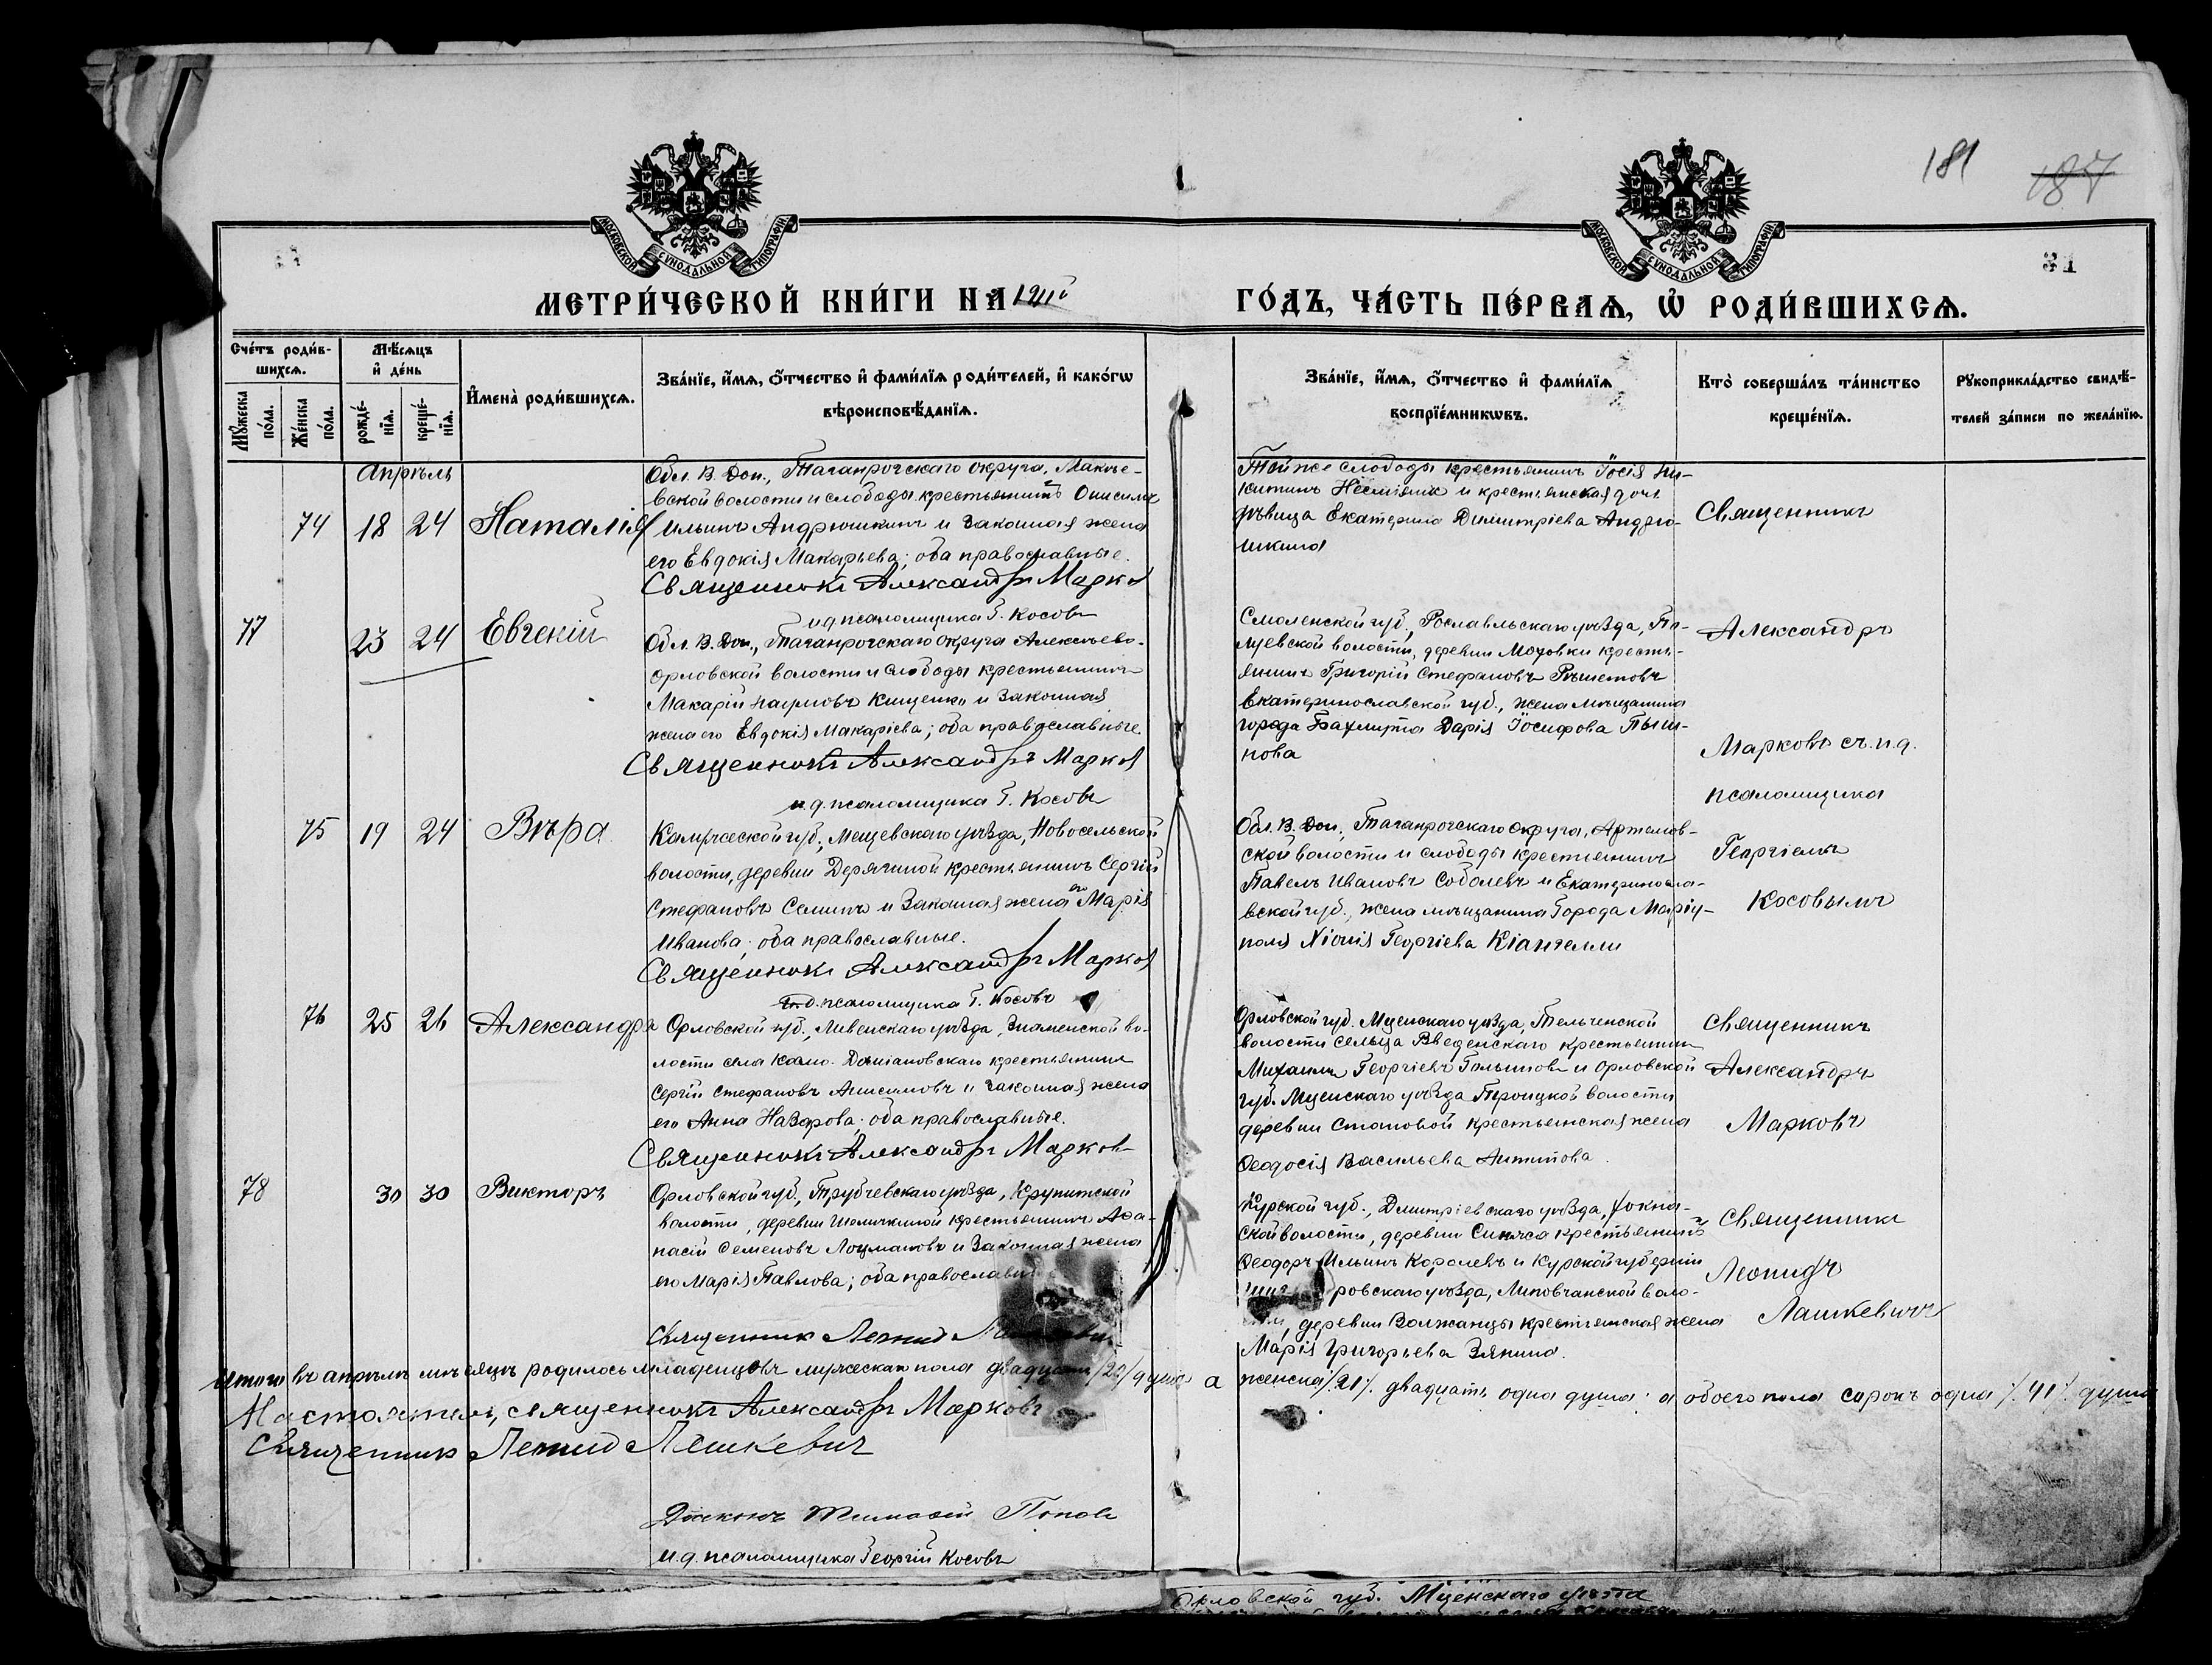 181 187
МОСКОВСКОЙ СѴНОДАЛЬНОЙ ТИПОГРАФІИ
МОСКОВСКОЙ СѴНОДАЛЬНОЙ ТИПОГРАФІИ
МЕТРИ́ЧЕСКОЙ КНИ́ГИ НА 1911й
ГО́ДЪ, ЧА́СТЬ ПЕ́РВАЯ, Ѽ РОДИ́ВШИХСЯ.
Сче́тъ роди́в-
шихся.
Мꙋ́жеска по́ла.
Же́нска по́ла.
Мѣ́сяцъ
и҆ де́нь
рожде́-
нїѧ.
креще́-
нїѧ.
И҆мена̀ роди́вшихся.
Зва́нїе, и҆́мя, о҆́тчество и҆ фами́лїя роди́телей, и҆ како́гѡ
вѣроисповѣ́данїя.
Зва́нїе, и҆́мя, о҆́тчество и҆ фами́лїя
воспрїе́мникѡвъ.
Кто̀ соверша́лъ та́инство
креще́нїя.
Рꙋкоприкла́дство свидѣ́-
телей за́писи по жела́нїю.
Апрѣль
74 18 24 Наталія
Обл. В. Дон., Таганрогскаго округа, Макѣе-
вской волости и слободы крестьянинъ Онисимъ
Ильинъ Андрюшкинъ и законная жена
его Евдокія Макарьева; оба православные.
Священникъ Александръ Марковъ
и.д. псаломщика Г. Косовъ
Той же слободы крестьянинъ Іосія Ни-
китинъ и крестьянская дочь
дѣвица Екатерина Димитріева Андрю-
шкина
Священникъ
77 23 24 Евгеній
Обл. В. Дон., Таганрогскаго округа Алексѣево-
орловской волости и слободы крестьянинъ
Макарій Наумовъ Кищенко и законная
жена его Евдокія Макаріева; оба православные
Священникъ Александръ Марковъ
и.д. псаломщика Г. Косовъ
Смоленской губ., Рославльскаго уѣзда,
волости, деревни Моховки кресть-
янинъ Григорій Стефановъ Рѣшетовъ
Екатеринославской губ., жена мѣщанина
города Бахмута Дарія Іосифова Пыш-
нова
Александръ
Марковъ съ и.д.
псаломщика
75 19 24 Вѣра
Калужской губ., Мещевскаго уѣзда, Новосельской
волости, деревни Дерягиной крестьянинъ Сергій
Стефановъ Семинъ и законная жена его Марія
Иванова; оба православные.
Священникъ Александръ Марковъ
и.д. псаломщика Г. Косовъ
Обл. В. Дон., Таганрогскаго округа, Артемов-
ской волости и слободы крестьянинъ
Павелъ Ивановъ Соболевъ и Екатеринosла-
вской губ., жена мѣщанина города Маріу-
поля Георгіева
Георгіемъ
Косовымъ
76 25 26 Александра
Орловской губ., Ливенскаго уѣзда, Знаменской во-
лости села Козмо-Даміановскаго крестьянинъ
Сергій Стефановъ Анисимовъ и законная жена
его Анна Назарова; оба православные.
Священникъ Александръ Марковъ
Орловской губ. Мценскаго уѣзда, Тельченской
волости сельца Введенскаго крестьянинъ
Михаилъ Георгіевъ и Орловской
губ. Мценскаго уѣзда Троицкой волости
деревни крестьянская жена
Ѳеодосія Васильева Антипова.
Священникъ
Александръ
Марковъ
78 30 30 Викторъ
Орловской губ., Трубчевскаго уѣзда,
волости, деревни крестьянинъ Аѳа-
насій Семеновъ Лоцмановъ и законная жена
его Марія Павлова; оба православн
Священникъ Леонид
Курской губ., Дмитріевскаго уѣзда,
волости, деревни крестьянинъ
Ѳеодоръ Ильинъ Королевъ и Курской губерніи
ровскаго уѣзда, Липовчанской воло-
сти, деревни Волжанцы крестьянская жена
Марія Григорьева Зянина.
Священникъ
Леонидъ
Лашкевичъ
Итого въ апрѣлѣ мѣсяцѣ родилось младенцовъ мужескаго пола двадцать /20/ душъ а женска /21/. двадцать одна душа: а обоего пола сорокъ одна /41/. душа
Настоятель, священникъ Александръ Марковъ
Священник Леонид Лашкевич
Діаконъ Тимоѳей Попов
и.д. псаломщика Георгій Косовъ
Орловской губ. Мценскаго уѣзда